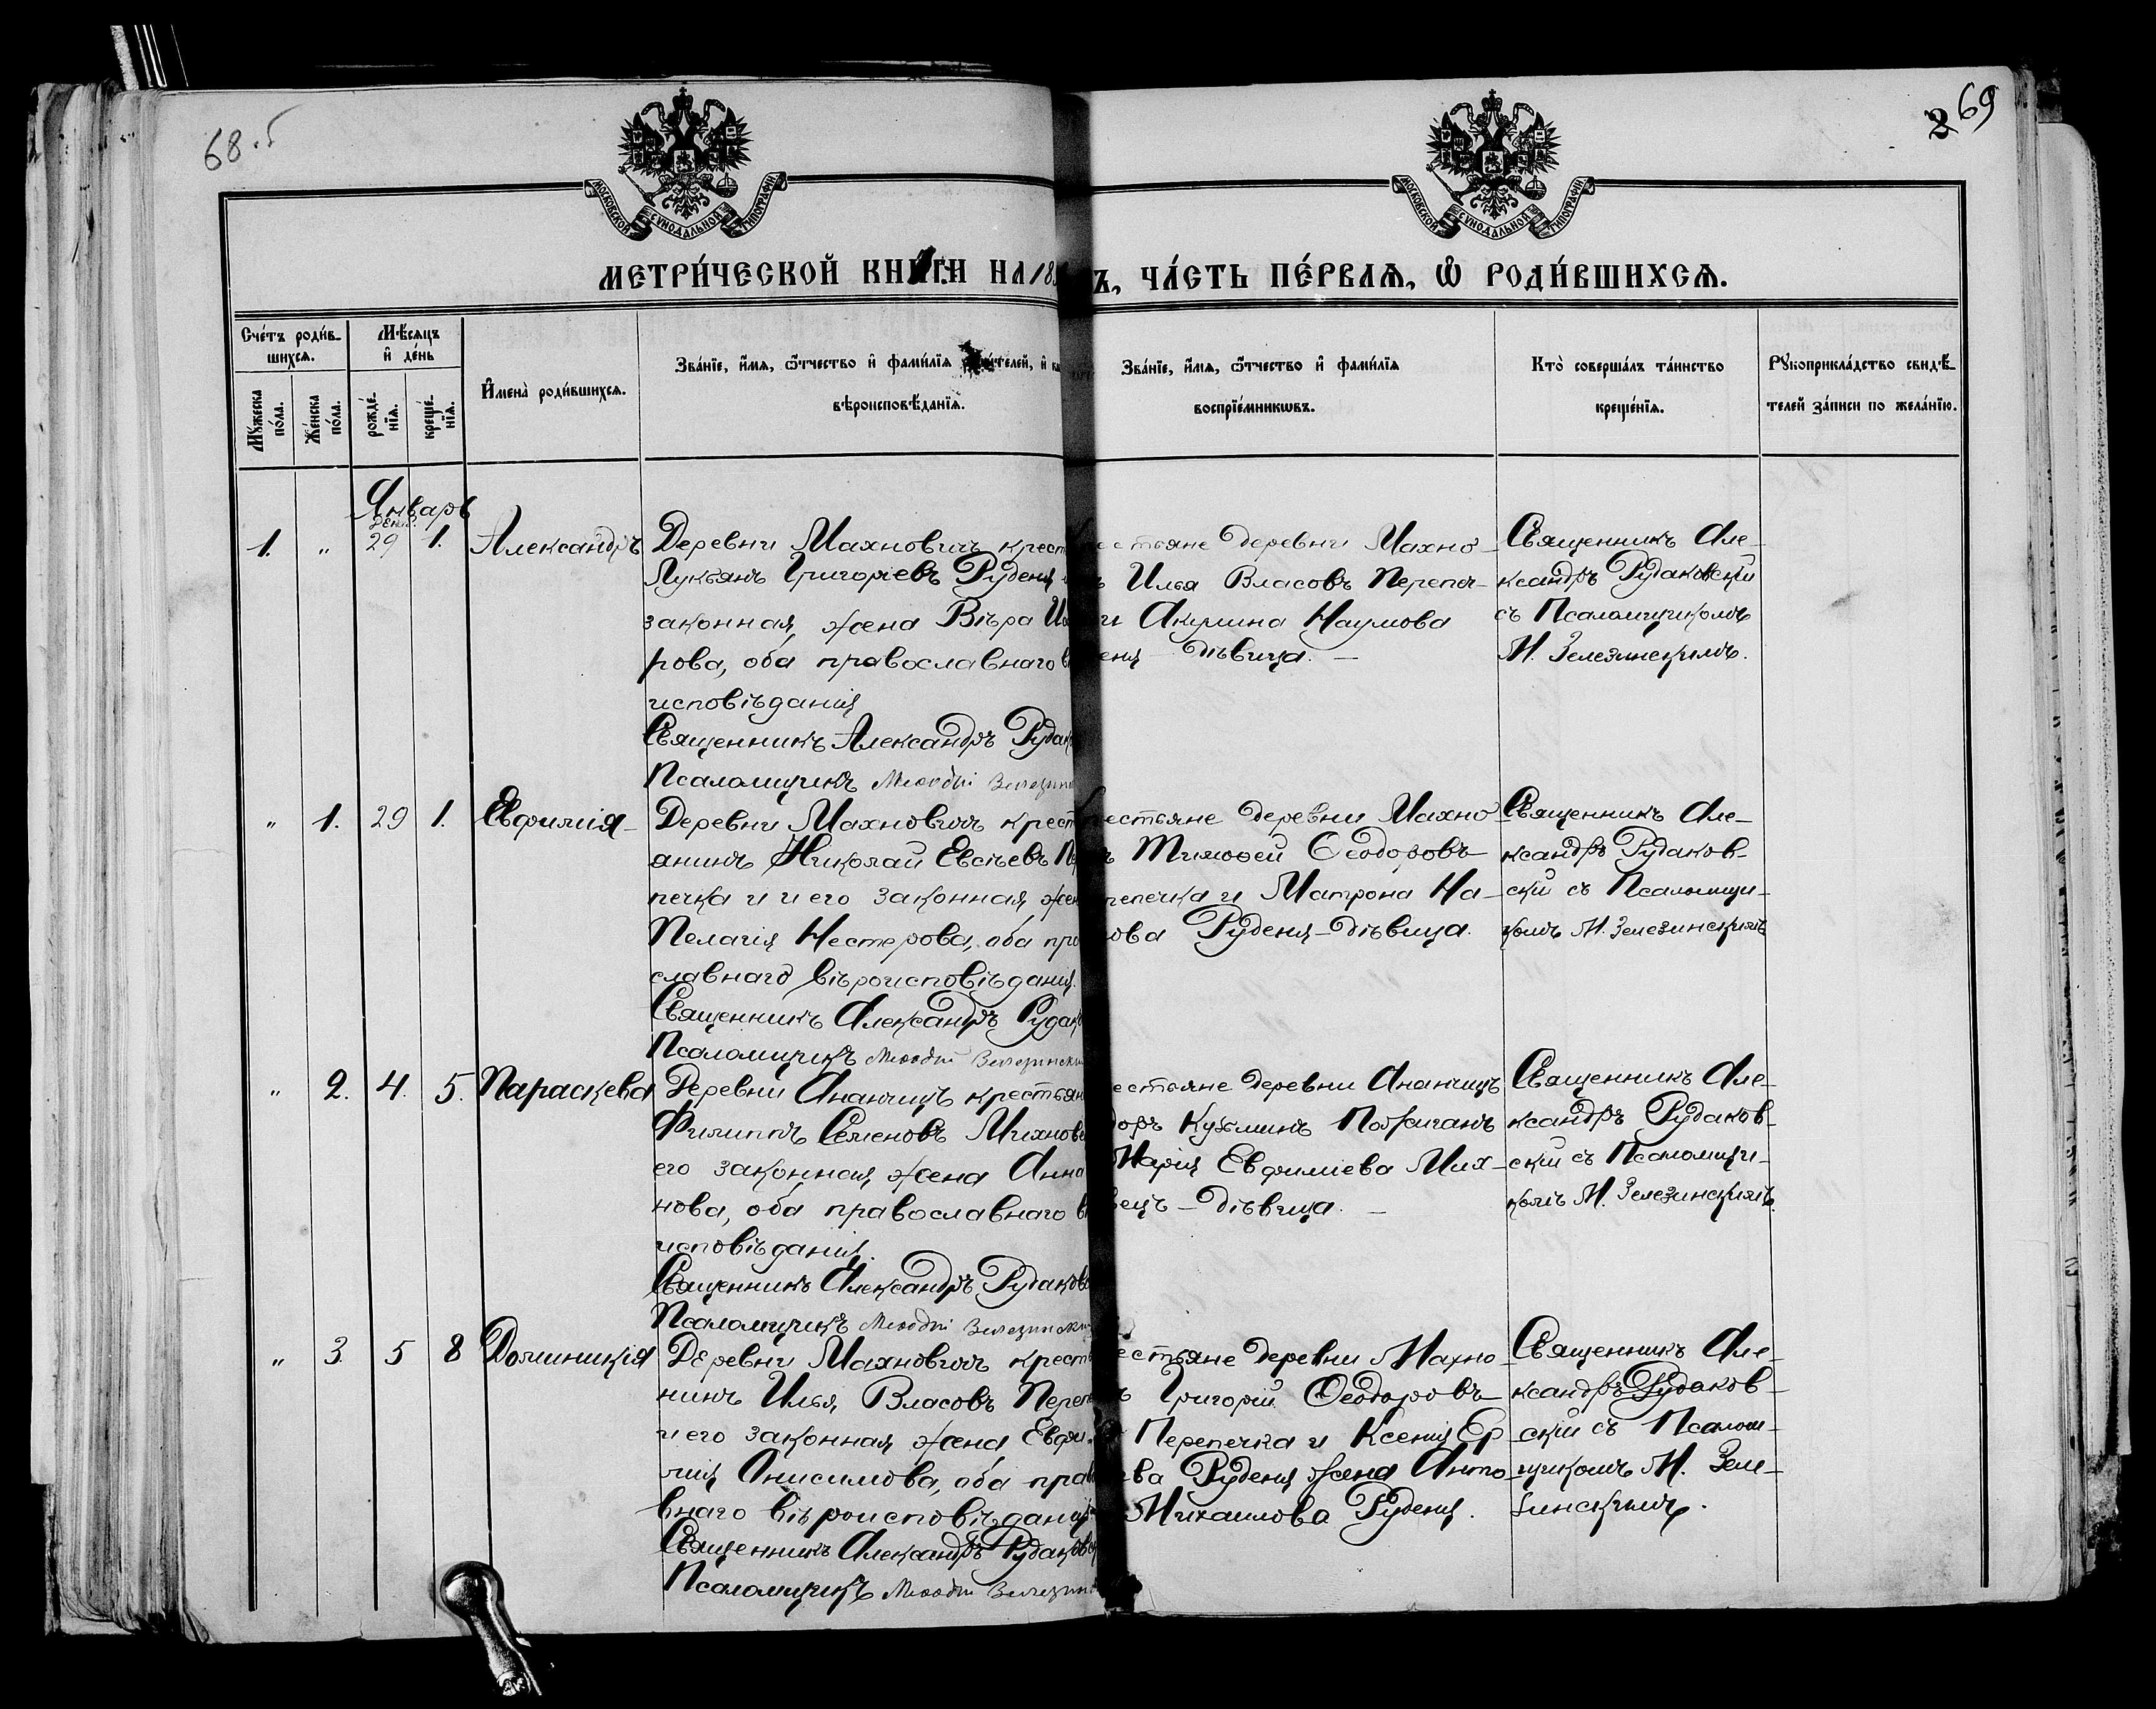 68.5
2 69
МОСКОВСКОЙ СУНОДАЛЬНОЙ ТИПОГРАФІИ
МОСКОВСКОЙ СУНОДАЛЬНОЙ ТИПОГРАФІИ
МЕТРИ́ЧЕСКОЙ КНИ́ГИ НА 18
Ъ, ЧА́СТЬ ПЕ́РВАѦ, Ѡ҆ РОДИ́ВШИХСѦ.
Сче́тъ роди́в-
шихсѧ.
Мѣ́сѧцъ
и҆ де́нь
Мꙋ́жеска
по́ла.
Же́нска
по́ла.
рожде́-
нїѧ.
креще́-
нїѧ.
И҆мена̀ роди́вшихсѧ.
Зва́нїе, и҆́мѧ, ѻ҆́тчество и҆ фами́лїѧ роди́телей, и҆
вѣроисповѣ́данїѧ.
Зва́нїе, и҆́мѧ, ѻ҆́тчество и҆ фами́лїѧ
воспрїе́мникѡвъ.
Кто̀ соверша́лъ та́инство
креще́нїѧ.
Рꙋкоприкла́дство свидѣ́-
телей за́писи по жела́нїю.
Январь
Дек.
1. „ 29 1. Александръ
Деревни Махновичъ крест
Лукьянъ Григоріевъ Руденя
законная жена Вѣра
рова, оба православнаго в
исповѣданія
Священникъ Александръ Рудак
Псаломщикъ Меѳодій Зелезин
естьяне деревни Махно-
ъ Илья Власовъ Перепеч-
и Акулина Наумова
еня дѣвица. —
Священникъ Але-
ксандръ Рудаковскій
съ Псаломщикомъ
М. Зелезинскимъ.
„ 1. 29 1. Евфимія
Деревни Махновичъ крест
янинъ Николай Евсѣевъ Пе
печка и и его законная жен
Пелагія Нестерова, оба пра
славнаго вѣроисповѣданія.
Священникъ Александръ Рудако
Псаломщикъ Меѳодій Зелезински
рестьяне деревни Махно-
ъ Тимоѳей Ѳеодоровъ
репечка и Матрона На-
ова Руденя - дѣвица.
Священникъ Але-
ксандръ Рудаков-
скій съ Псаломщи-
комъ М. Зелезинскимъ
„ 2. 4. 5. Параскева
Деревни Ананчицъ крестьян
Филиппъ Семеновъ Михнове
его законная жена Анна
нова, оба православнаго в
исповѣданія.
Священникъ Александръ Рудаковс
Псаломщикъ Меѳодій Зелезински
естьяне деревни Ананчицъ
доръ Кузьминъ Пожиганъ
Марія Евфиміева Мих-
вецъ - дѣвица. —
Священникъ Але-
ксандръ Рудаков-
скій съ Псаломщи-
комъ М. Зелезинскимъ
„ 3. 5 8 Домникія
Деревни Махновичъ крестья
нинъ Илья Власовъ Переп
и его законная жена Евфи-
мія Онисимова, оба прав
внаго вѣроисповѣданія
Священникъ Александръ Рудаковс
Псаломщикъ Меѳодій Зелезин
естьяне деревни Махно-
ъ Григорій Ѳеодоровъ
Перепечка и Ксенія Ер
ва Руденя жена Анто-
Михаилова Руденя.
Священникъ Але-
ксандръ Рудаков-
скій съ Псалом-
щикомъ М. Зеле-
зинскимъ.